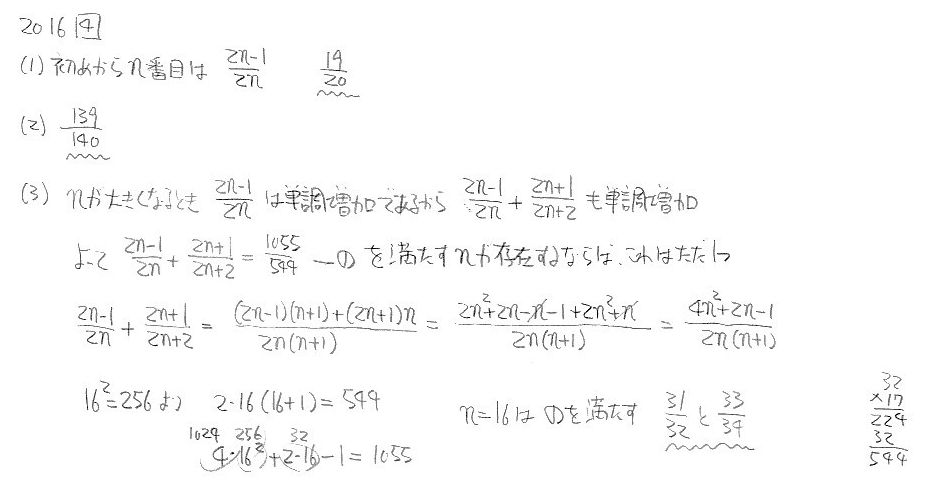 2016 4
(1) 初めからn番目は (2n-1)/(2n) 19/20
(2) 139/140
(3) nが大きくなるとき (2n-1)/(2n) は単調増加であるから (2n-1)/(2n) + (2n+1)/(2n+2) も単調増加
よって (2n-1)/(2n) + (2n+1)/(2n+2) = 1055/544 —① を満たすnが存在するならば、これはただ1つ
(2n-1)/(2n) + (2n+1)/(2n+2) = ((2n-1)(n+1)+(2n+1)n)/(2n(n+1)) = (2n²+2n-n-1+2n²+n)/(2n(n+1)) = (4n²+2n-1)/(2n(n+1))
16²=256より 2·16(16+1)=544 n=16は①を満たす 31/32 と 33/34
1024 256 32
4·16²+2·16-1=1055
32
×17
224
32
544